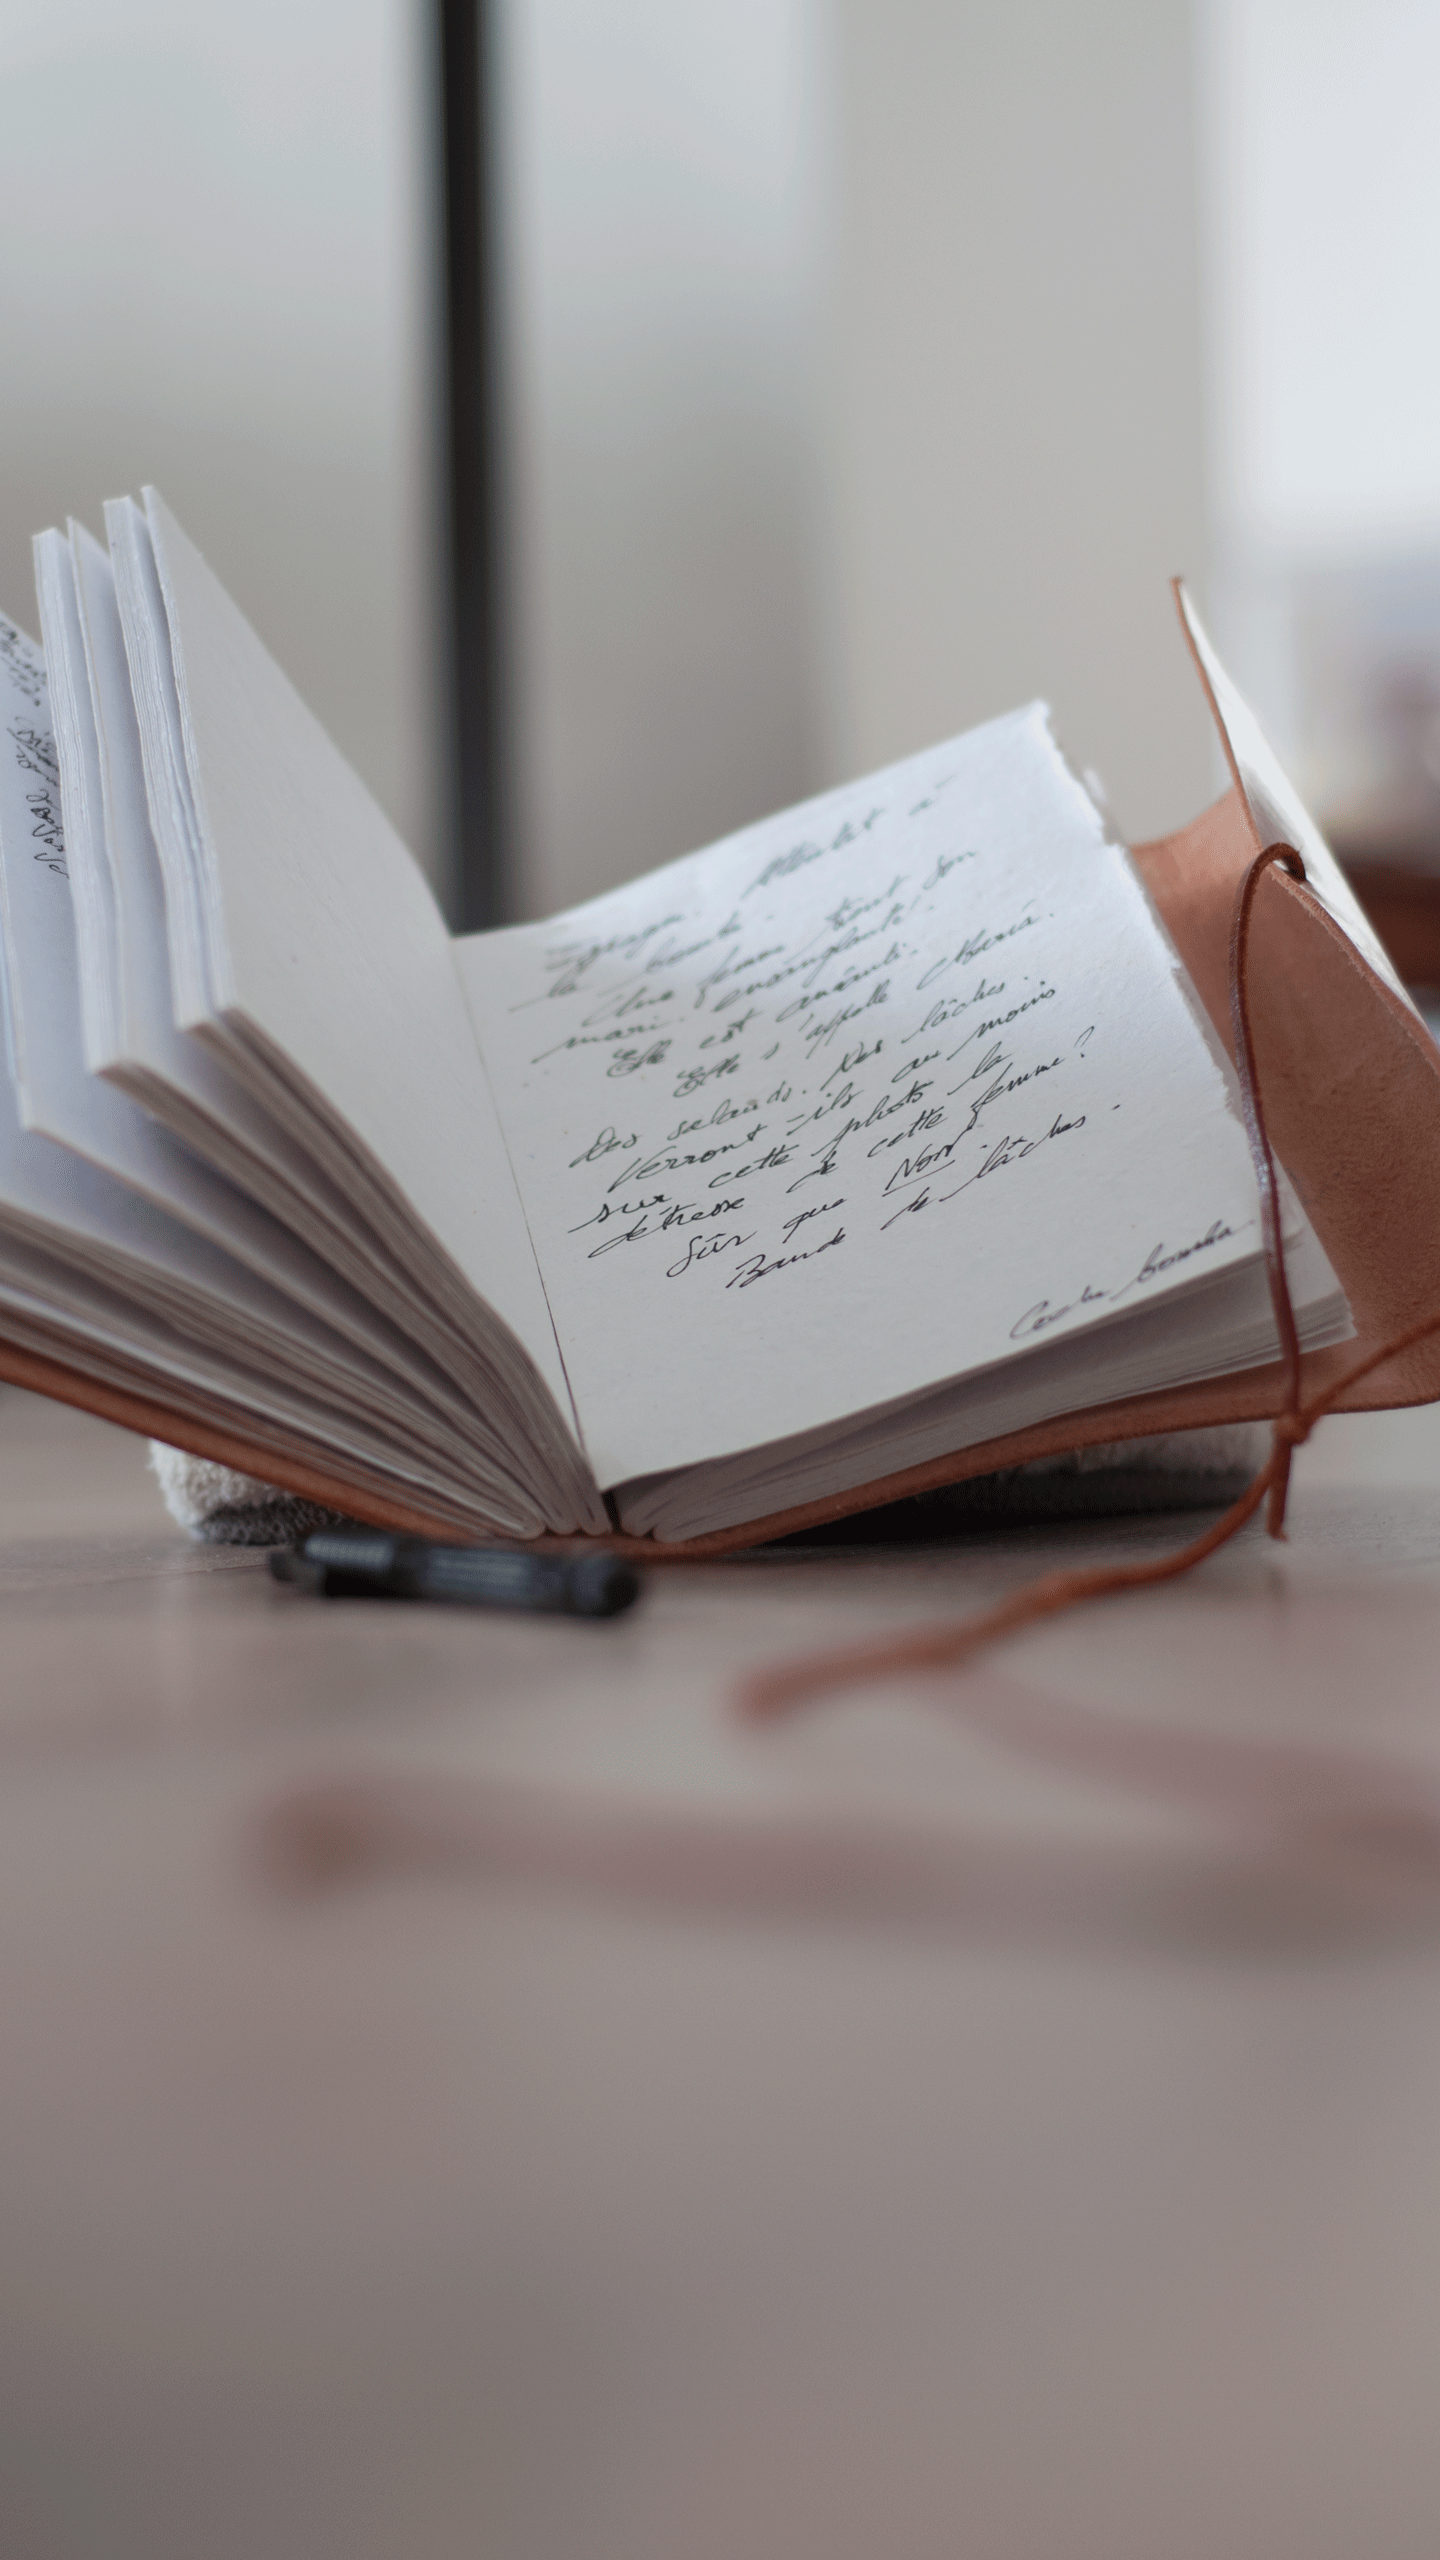 Espagne. Attentat à
la bombe.
Une femme tient son
mari. ensanglanté!
Elle est anéanti.
Elle s'appelle Maria.
Des salauds. Des lâches.
Verront-ils au moins
sur cette photo la
détresse de cette femme?
Sûr que Non!
Bande de lâches.